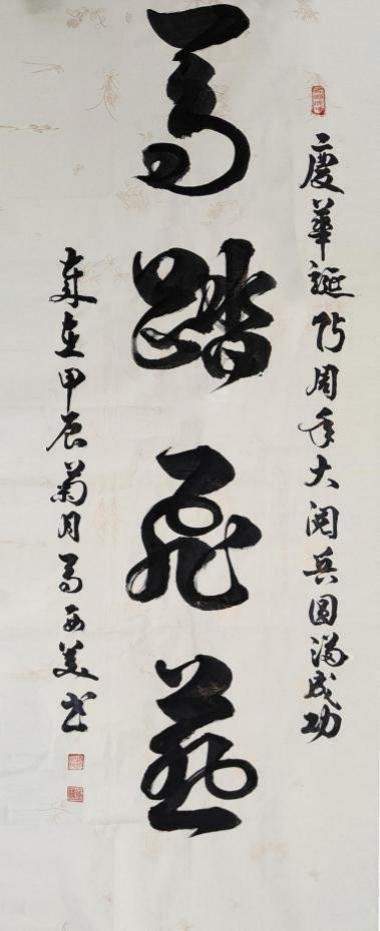 慶華誕周年大閱兵圓滿成功
馬踏飛燕
歲在甲辰菊月馬西美書